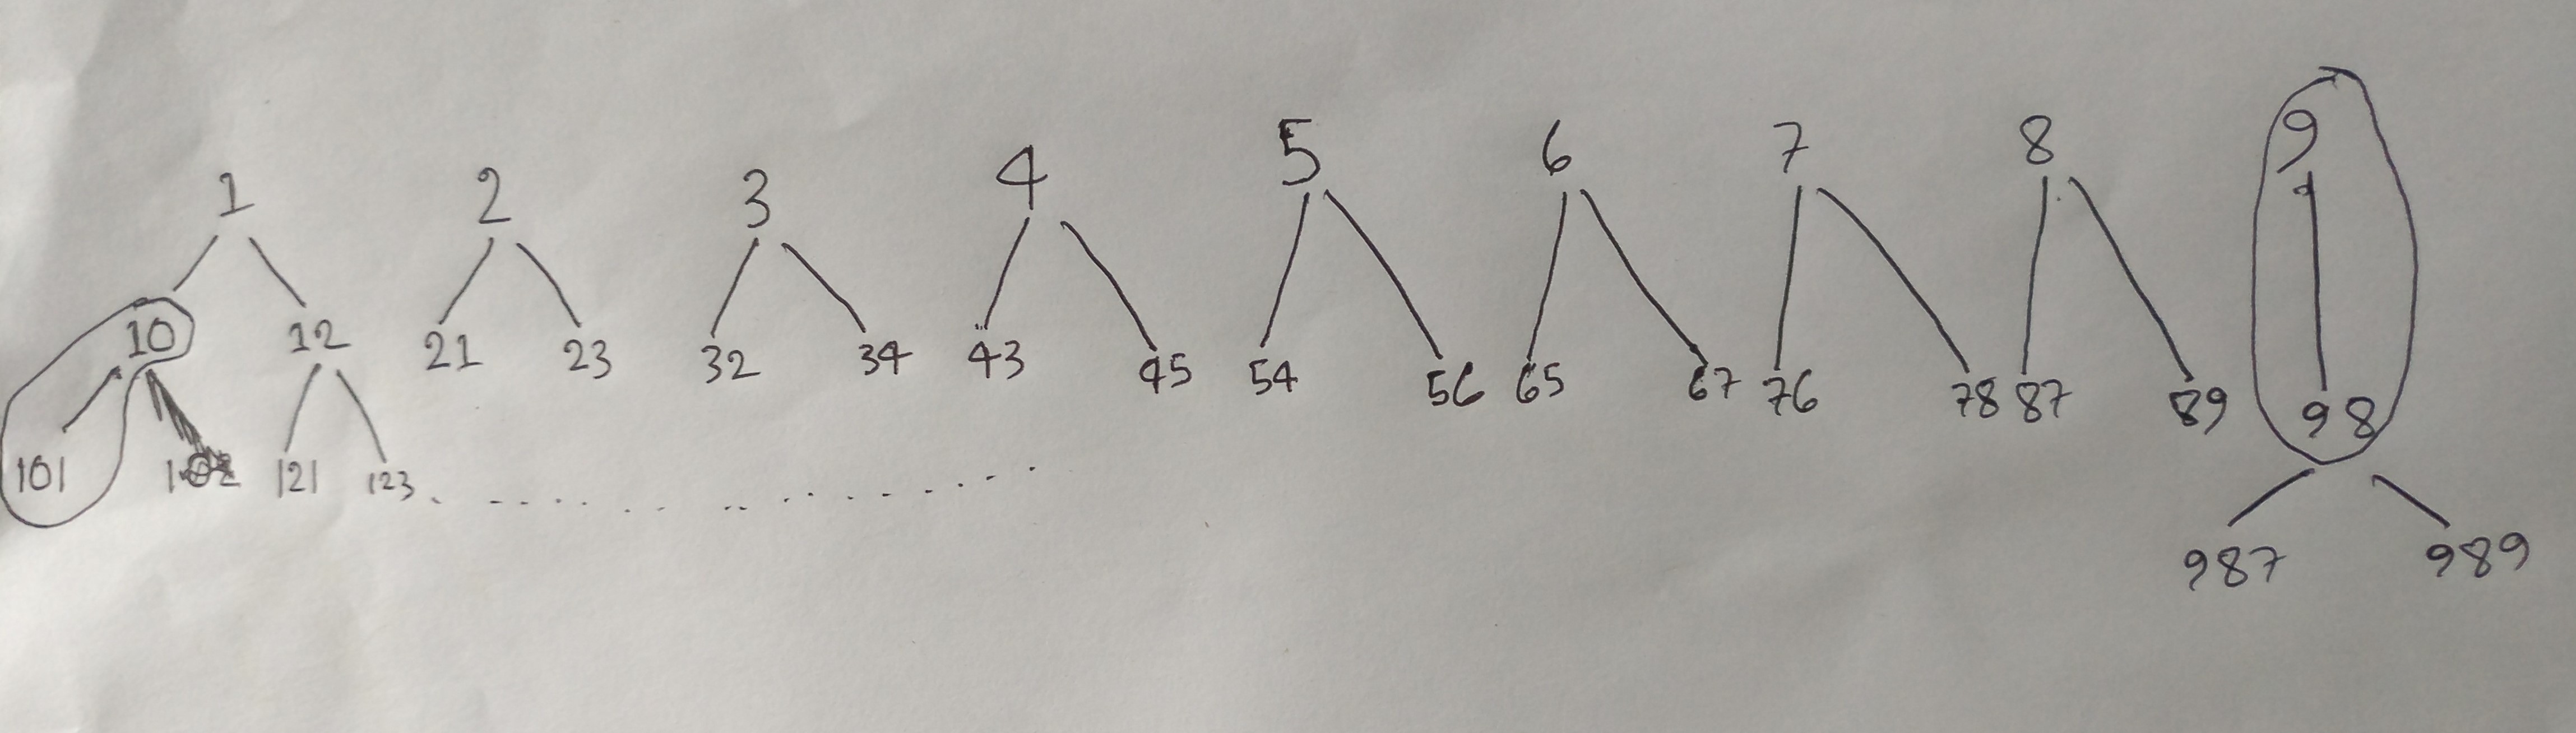 1 2 3 4 5 6 7 8 9
10 12 21 23 32 34 43 45 54 56 65 67 76 78 87 89 98
101 121 123
987 989